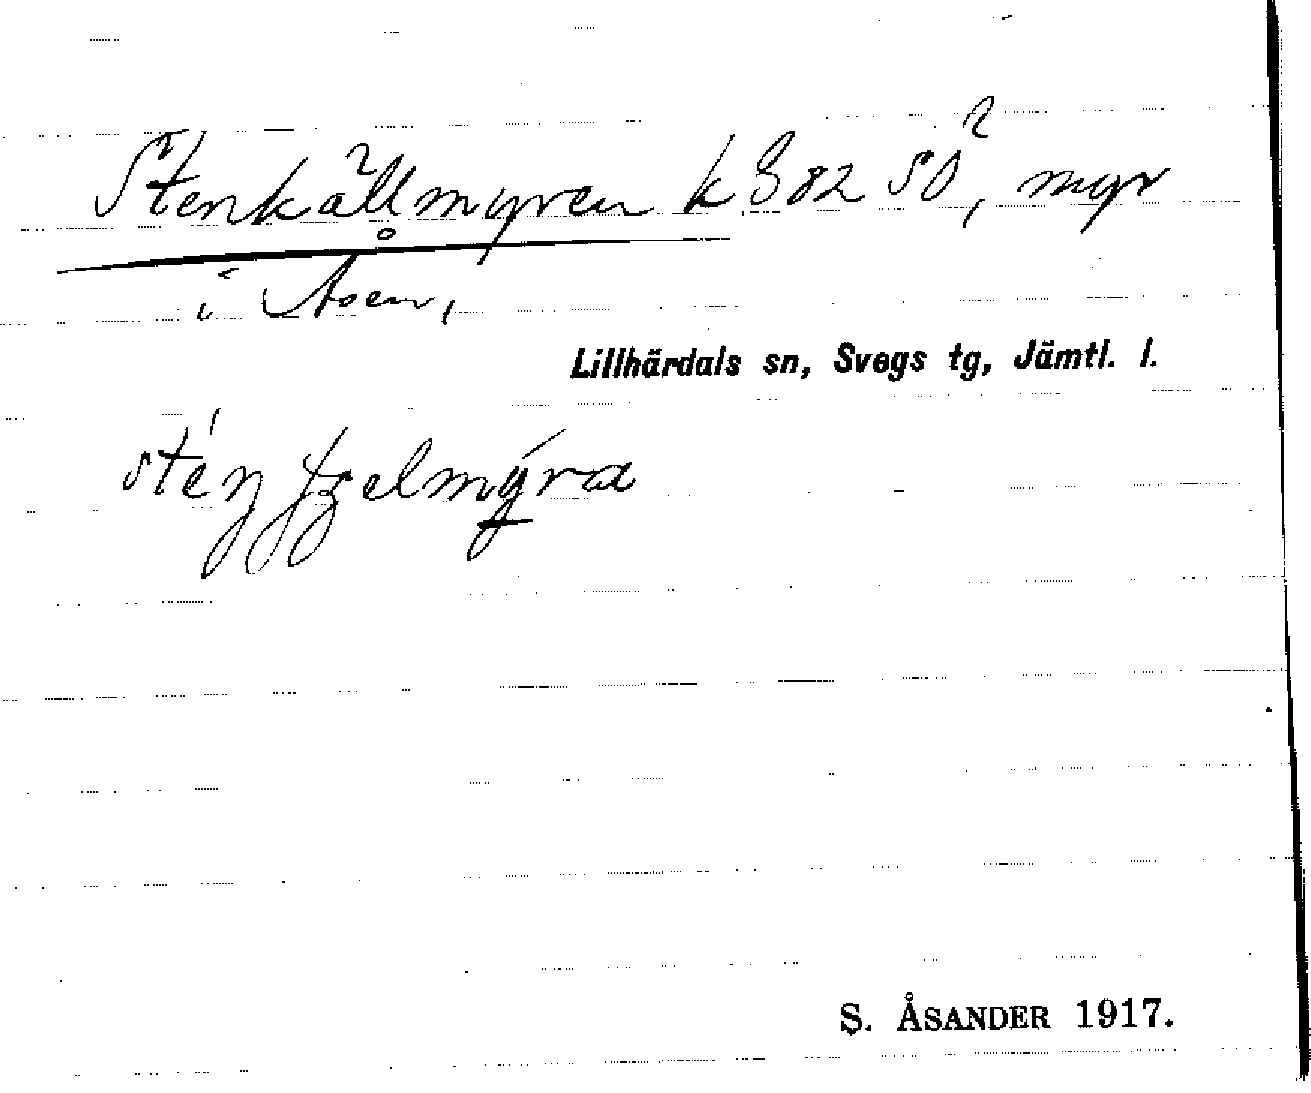 Stenkällmyren k 882 SO, myr
i Åsen,
Lillhärdals sn, Svegs tg, Jämtl. l.
S. ÅSANDER 1917.